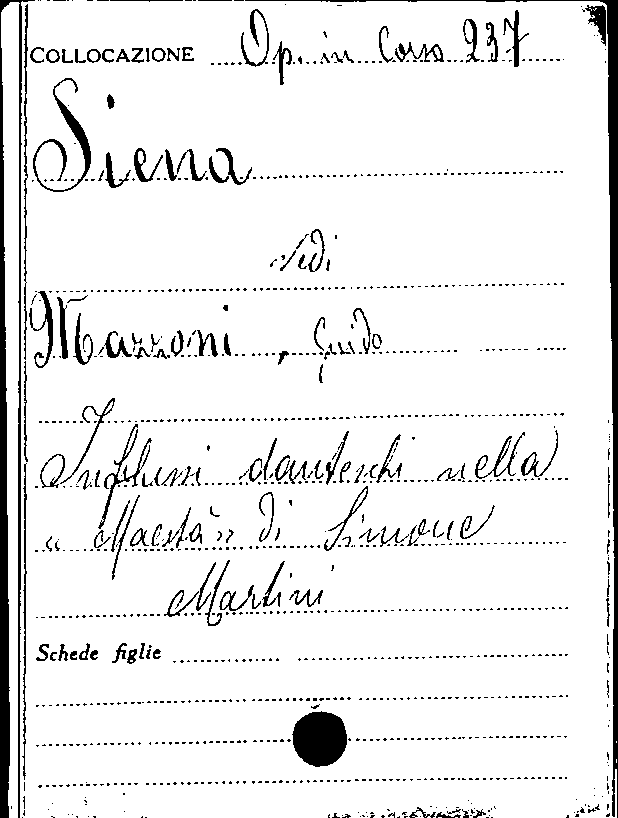 COLLOCAZIONE Op. in Corso 237
Siena
vedi
Mazzoni, Guido
Influssi danteschi nella
"Maestà" di Simone
Martini
Schede figlie